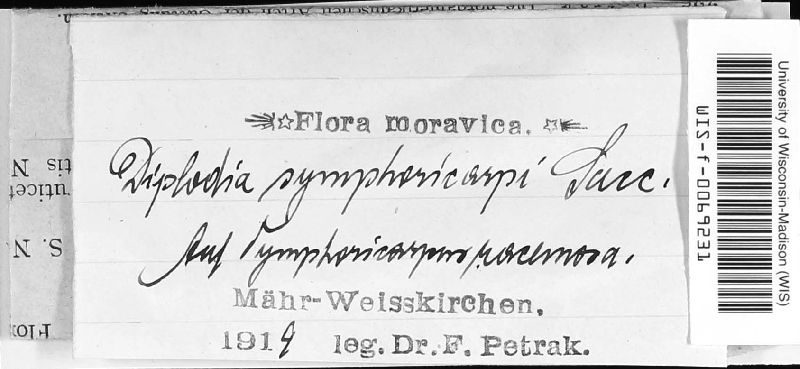 Flora moravica.
Diplodia symphoricarpi Sacc.
Auf Symphoricarpus racemosa.
Mähr-Weisskirchen,
1919 leg. Dr. F. Petrak.
University of Wisconsin-Madison (WIS)
WIS-f-0069231
tis N
S. N